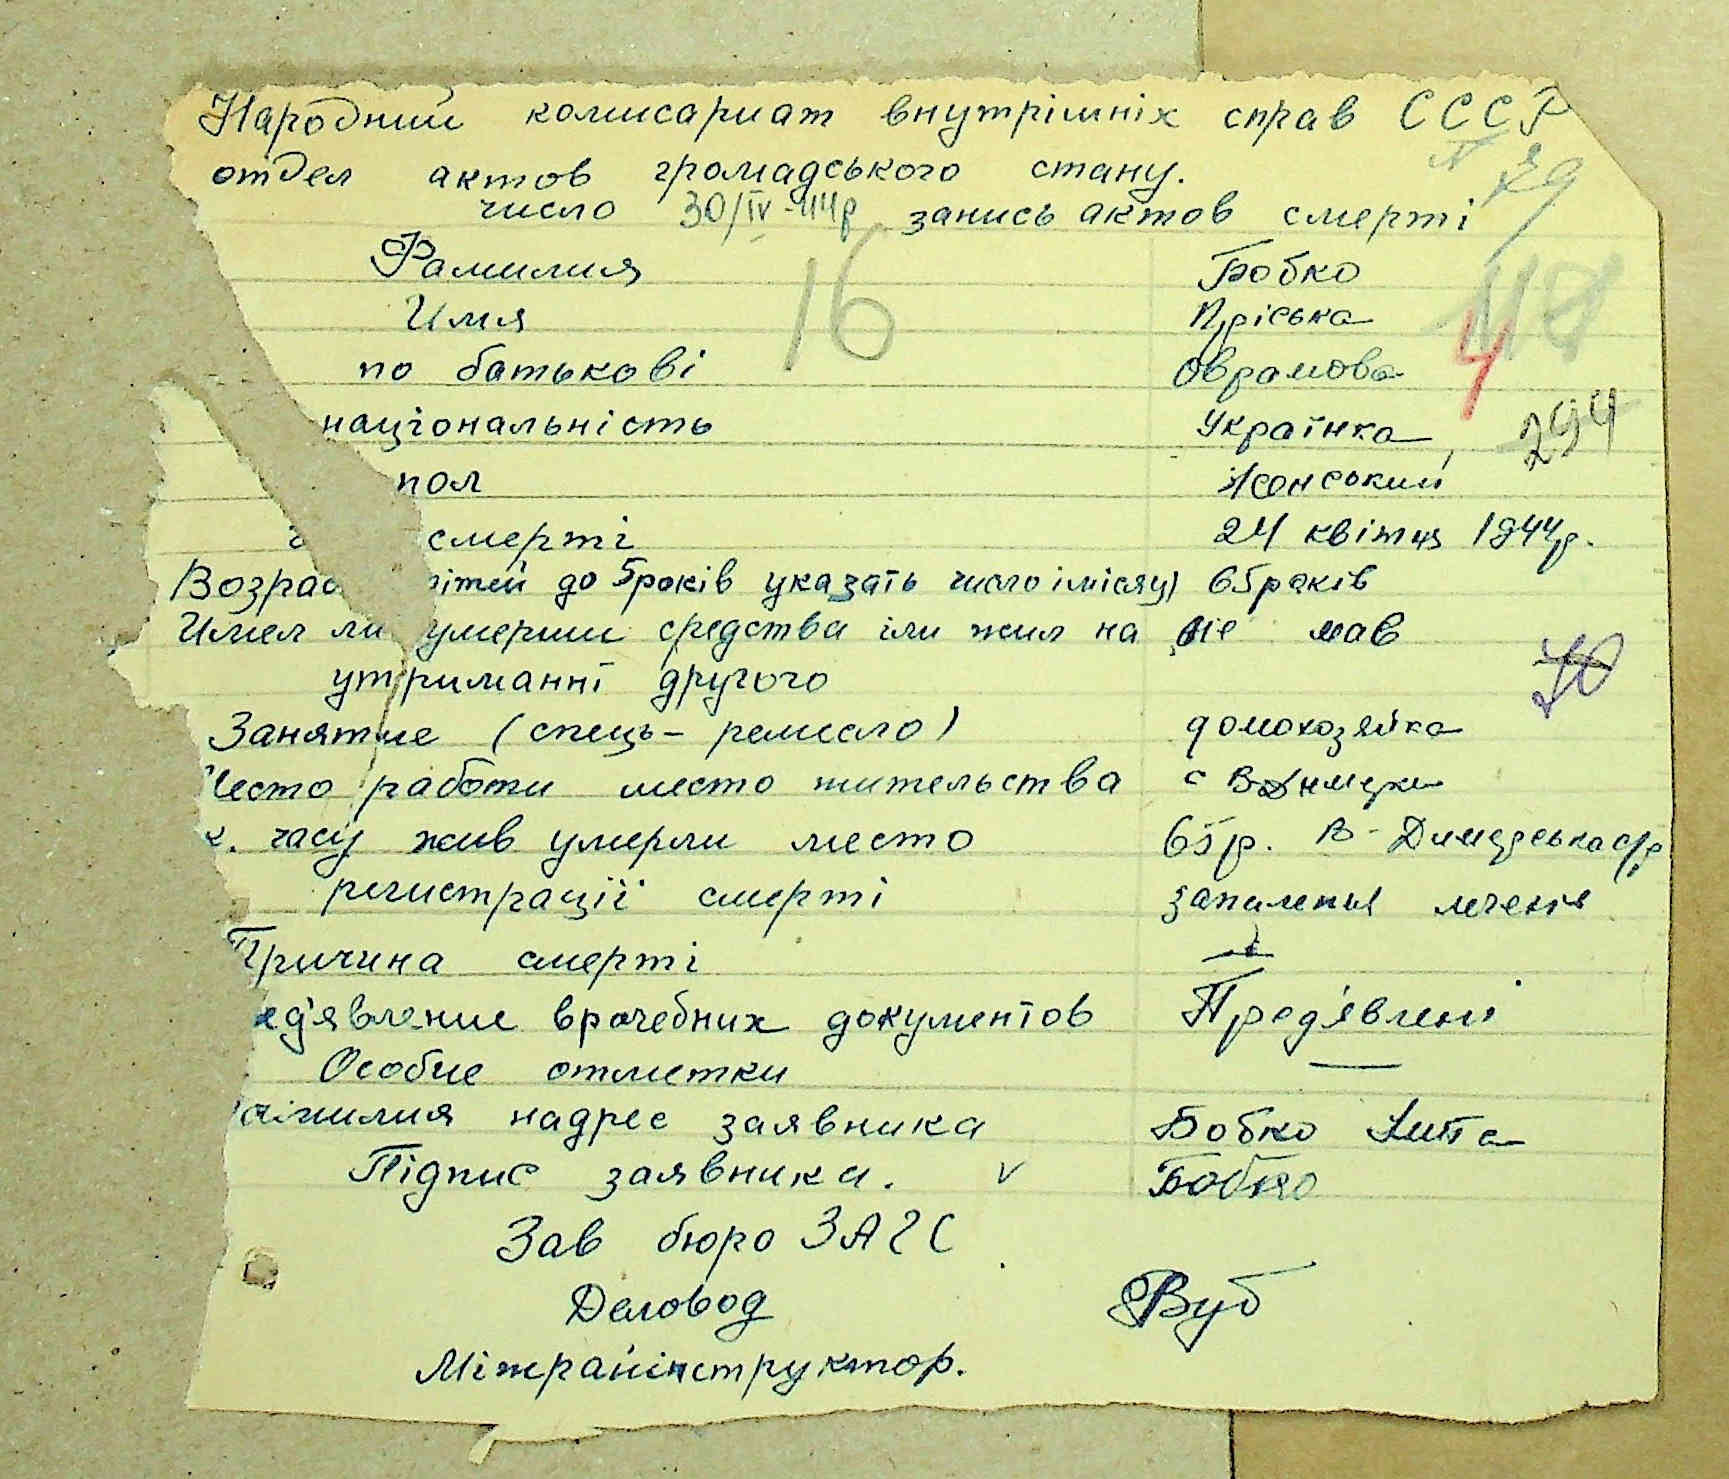 Народний комисариат внутрішніх справ СССР
отдел актов громадського стану.
№ 29
число 30/IV-44р запись актов смерті
Фамилия Бобко
16
Имя Пріська
4
по батькові Оврамова
національність Українка
294
пол Жонський
смерті 24 квітня 1944р.
Возрас ітей до 5років указать число і місяц) 65 років
Имел ли умерши средства іли жил на не мав
утриманні другого
70
Занятие (спець- ремисло) домохозяйка
Место работи место жительства с В Димерки
к. часу жив умерли место 65р. В-Димерська с/р
регистрації смерті запаленья легенів
Причина смерті
ед'явление врачебних документов Пред'явлені
Особие отметки —
аімилия надрес заявника Бобко
Підпис заявника. v Бобко
Зав бюро ЗАГС
Деловод
Міжрайінструктор.